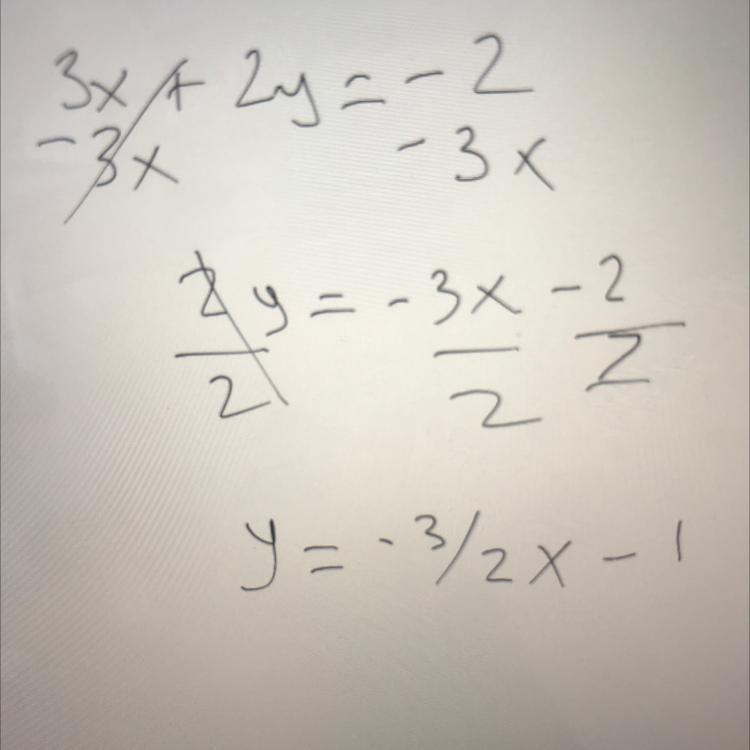 3x + 2y = - 2
- 3x - 3x
2y = - 3x - 2
2 2 2
y = - 3/2 x - 1